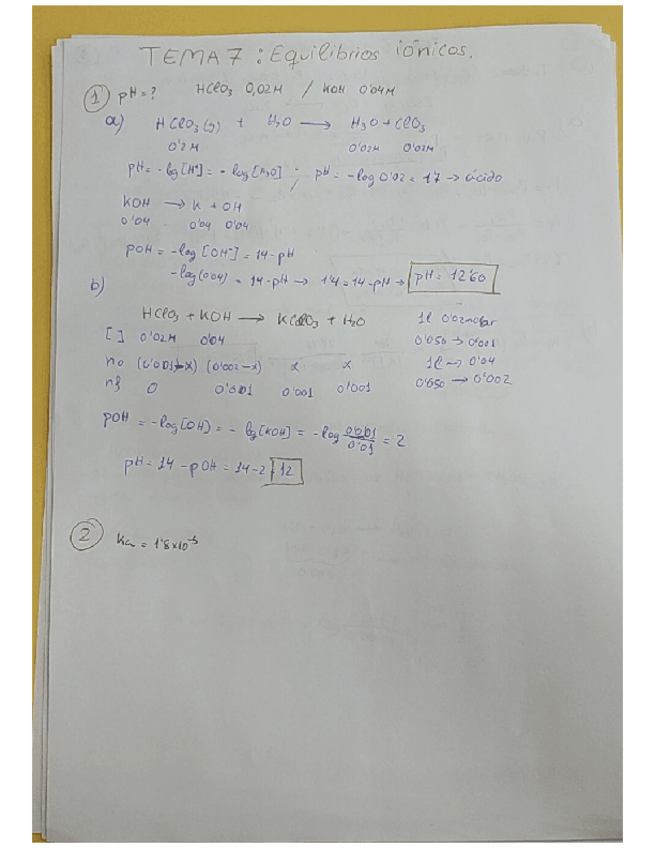 TEMA 7 : Equilibrios iónicos.
1 pH = ? HClO3 0,02M / KOH 0'04M
a) HClO3(g) + H2O → H3O + ClO3
0'2M 0'02M 0'02M
pH = -log[H+] = -log[H3O] ; pH = -log 0'02 = 1'7 → ácido
KOH → K + OH
0'04 0'04 0'04
POH = -log[OH-] = 14-pH
-log(0'04) = 14-pH → 1'4 = 14-pH → pH = 12'60
b)
HClO3 + KOH → KClO3 + H2O 1l 0'02molar
[ ] 0'02M 0'04 0'050 → 0'001
no (0'001-x) (0'002-x) x x 1l → 0'04
nf 0 0'001 0'001 0'001 0'050 → 0'002
POH = -log[OH) = -log[KOH] = -log 0'001/0'01 = 2
pH = 14 - pOH = 14-2 = 12
2 Ka = 1'8x10-5